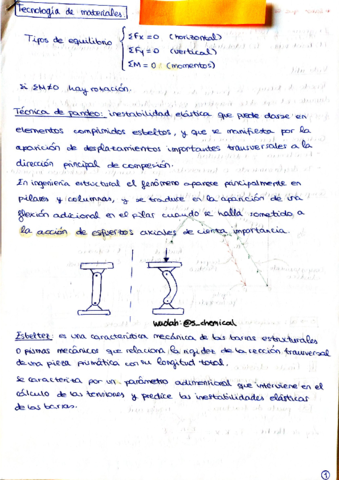 Tecnología de materiales.
Tipos de equilibrio { ΣFx = 0 (horizontal)
ΣFy = 0 (vertical)
ΣM = 0 (momentos)
Si ΣM≠0 hay rotación.
Técnica de pandeo: inestabilidad elástica que puede darse en
elementos comprimidos esbeltos, y que se manifiesta por la
aparición de desplazamientos importantes transversales a la
dirección principal de compresión.
En ingeniería estructural el fenómeno aparece principalmente en
pilares y columnas, y se traduce en la aparición de una
flexión adicional en el pilar cuando se halla sometido a
la acción de esfuerzos axiales de cierta importancia.
wuolah: @s_chemical
Esbeltez: es una característica mecánica de las barras estructurales
o prismas mecánicos que relaciona la rigidez de la sección transversal
de una pieza prismática con su longitud total.
Se caracteriza por un parámetro adimensional que interviene en el
cálculo de las tensiones y predice las inestabilidades elásticas
de las barras.
1